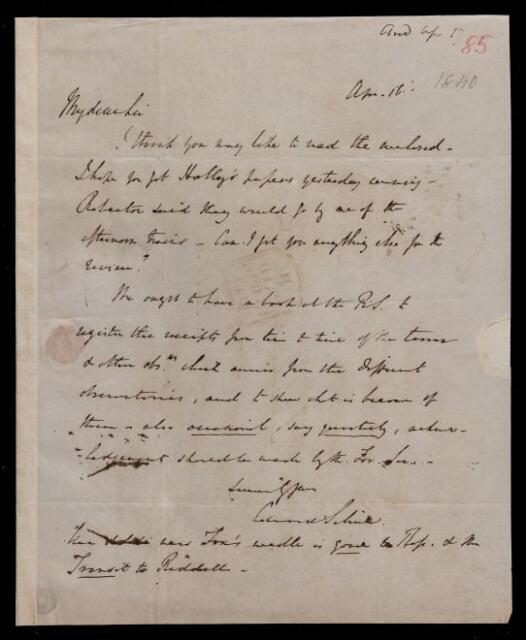 And Apr 1
85
1840
Apr. 16.
My dear Sir
I think you may like to read the enclosed –
I hope you got Halley's papers yesterday evening –
said they would go by one of the
afternoon trains – Can I get you anything else for the
review?
We ought to have a book at the R.S. to
register the receipts from time to time of the term
& other obs.ns which arrive from the different
observatories, and to shew what is become of
them – also occasional, say quarterly, acknow-
ledgement should be made by the For. Sec. –
Sincerely yours
Edward Sabine.
The new Fox's needle is gone to Ross. & the
Transit to Riddell –